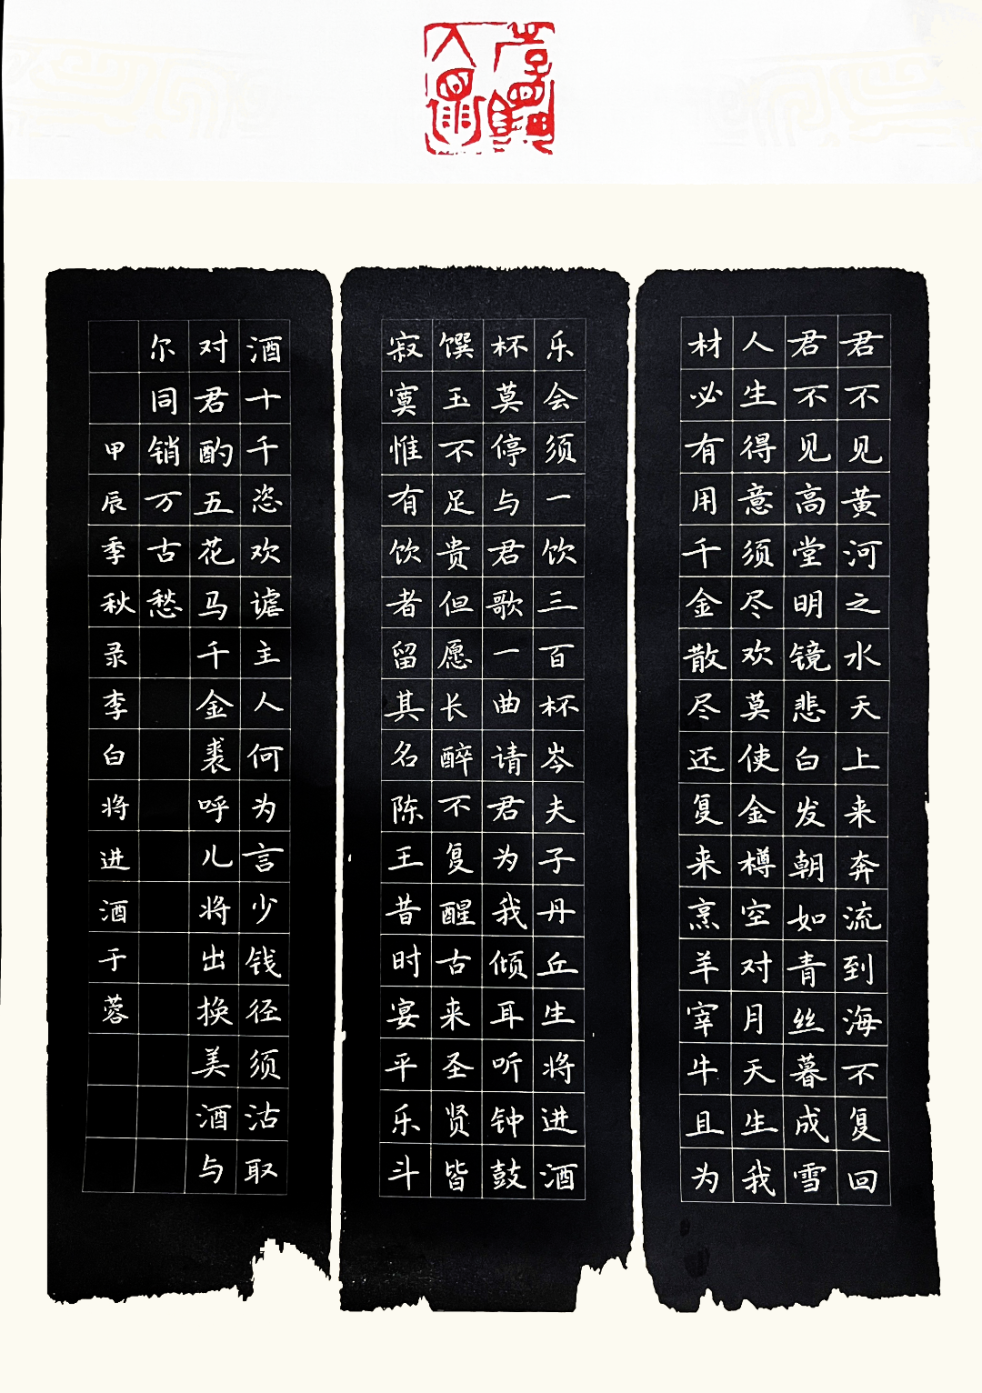 君不见黄河之水天上来奔流到海不复回
君不见高堂明镜悲白发朝如青丝暮成雪
人生得意须尽欢莫使金樽空对月天生我
材必有用千金散尽还复来烹羊宰牛且为
乐会须一饮三百杯岑夫子丹丘生将进酒
杯莫停与君歌一曲请君为我倾耳听钟鼓
馔玉不足贵但愿长醉不复醒古来圣贤皆
寂寞惟有饮者留其名陈王昔时宴平乐斗
酒十千恣欢谑主人何为言少钱径须沽取
对君酌五花马千金裘呼儿将出换美酒与
尔同销万古愁
甲辰季秋录李白将进酒于蓉